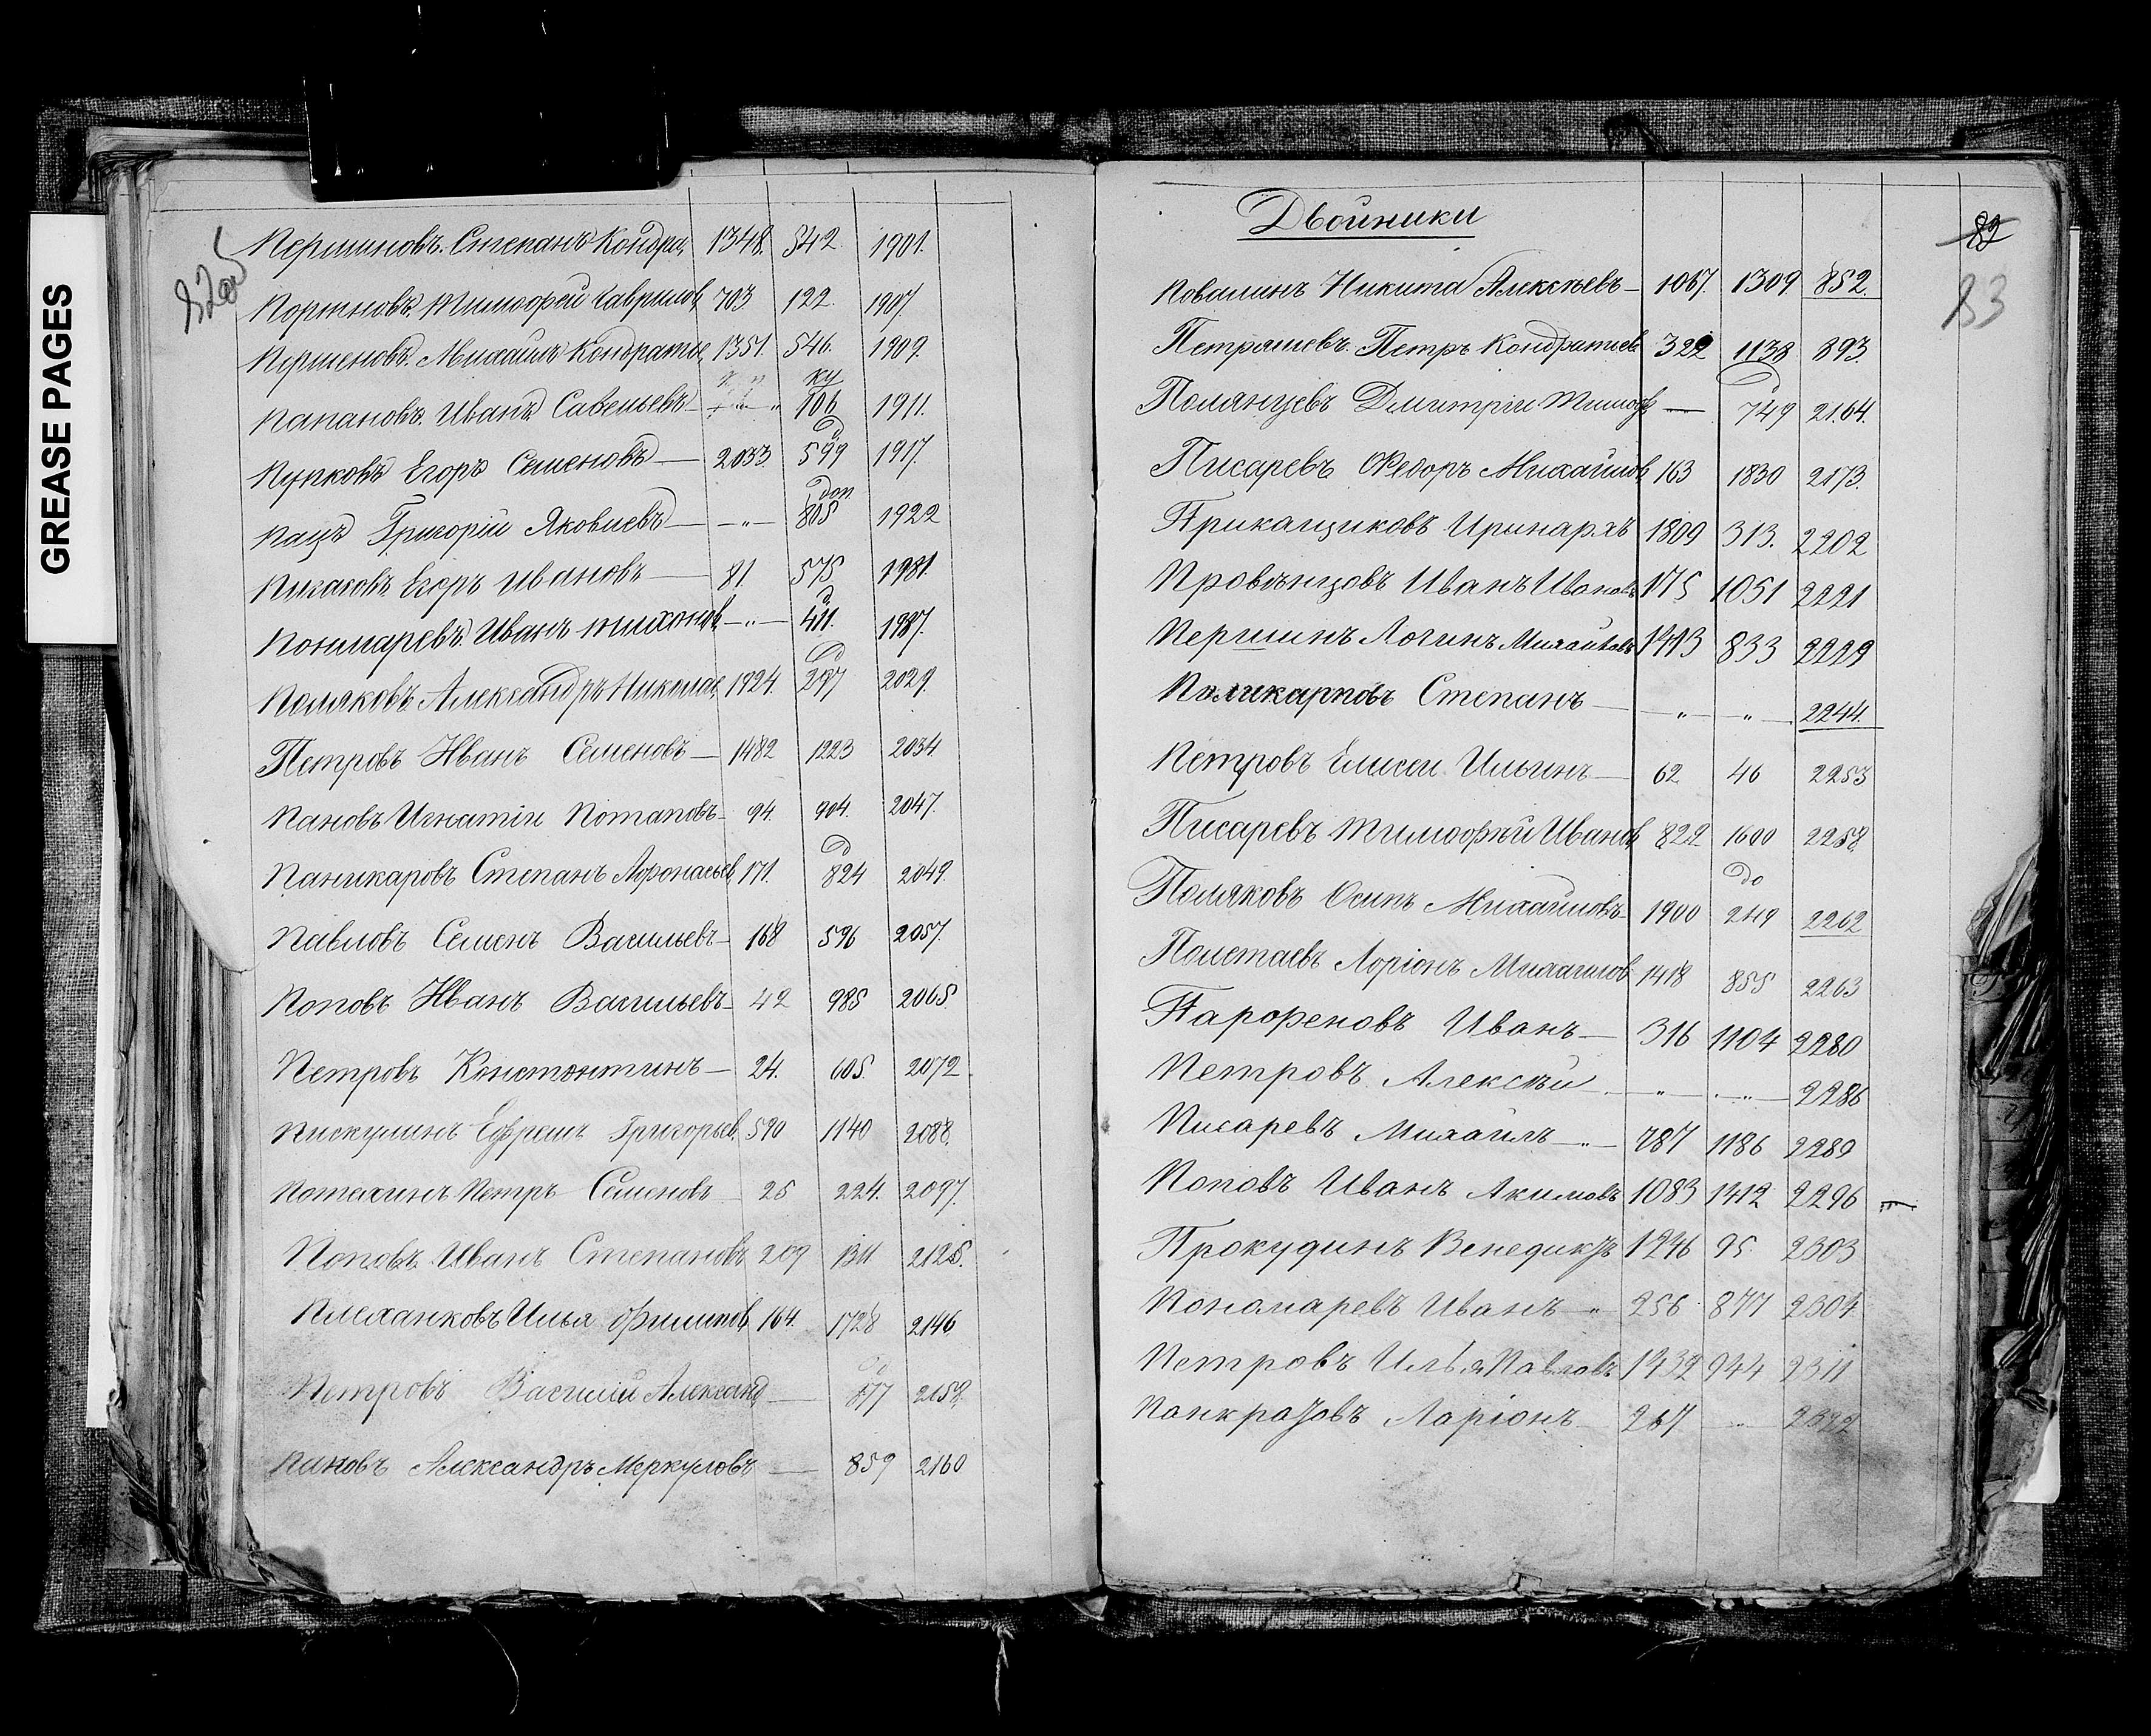 GREASE PAGES
82об
Першиновъ. Степанъ Кондра, 1348. 542. 1901.
Портновъ. Тимофей Гаврилов, 703. 122. 1907.
Першеновъ. Михаилъ Кондратье, 1351. 546. 1909.
ку
Папановъ. Иванъ Савельевъ — „ 106 1911.
д
Пупковъ Егоръ Семеновъ — 2033. 599 1917.
доп
Пацъ Григорій Яковлевъ — „ — 805 1922
Пигасовъ Егоръ Ивановъ — 81 575 1981.
д
Пономаревъ. Иванъ Тихонов, — „ — 411. 1987.
д
Поляковъ Александръ Николае, 1824. 297 2029.
Петровъ Иванъ Семеновъ — 1482 1223 2034
Пановъ Игнатій Потаповъ — 94. 904. 2047.
д
Паникаровъ Степанъ Афонасьев, 171. 824 2049.
Павловъ Семенъ Васильевъ — 168 596 2057.
Поповъ Иванъ Васильевъ — 42 985 2065.
Петровъ Константинъ — 24. 605. 2072.
Пискулинъ Ефремъ Григорьев, 590 1140 2088.
Потехинъ Петръ Семеновъ — 25 224. 2097.
Поповъ Иванъ Степановъ 209 1311. 2125.
Плеханковъ Илья Филипов, 164. 1728 2146
д
Петровъ Василій Александ, — 877 2158.
Пиновъ Александръ Меркуловъ — 859 2160
Двойники
82
83
Повалинъ Никита Алексѣевъ — 1067. 1309 852.
Петряшевъ. Петръ Кондратьев 322 1138 893.
д
Полянцевъ Дмитрій Тимоф, — 749 2164.
Писаревъ Федоръ Михайлов, 163 1830 2173.
Прикащиковъ Иринархъ 1809 313. 2202
Провѣнцовъ Иванъ Ивановъ 175 1051 2221
Першинъ Логинъ Михайловъ 1413 833 2229
Поликарповъ Степанъ — „ — „ — 2244.
Петровъ Елисей Ильинъ — 62 46 2253
Писаревъ Тимофѣй Иванов, 822 1600 2258.
до
Поляковъ Осипъ Михайловъ — 1900 249 2262
Полетаевъ Ларіонъ Михайлов 1418 855 2263
Парфеновъ Иванъ — 316 1104 2280
Петровъ Алексѣй — „ — „ — 2286
Писаревъ Михаилъ — „ — 787 1186 2289
Поповъ Иванъ Акимовъ 1083 1412 2296
Прокудинъ Венедиктъ 1246 95. 2303
Пономаревъ Иванъ — „ 256 877 2304.
Петровъ Илья Павловъ 1432 944 2311
Панкратовъ Ларіонъ — 267 — „ 2322